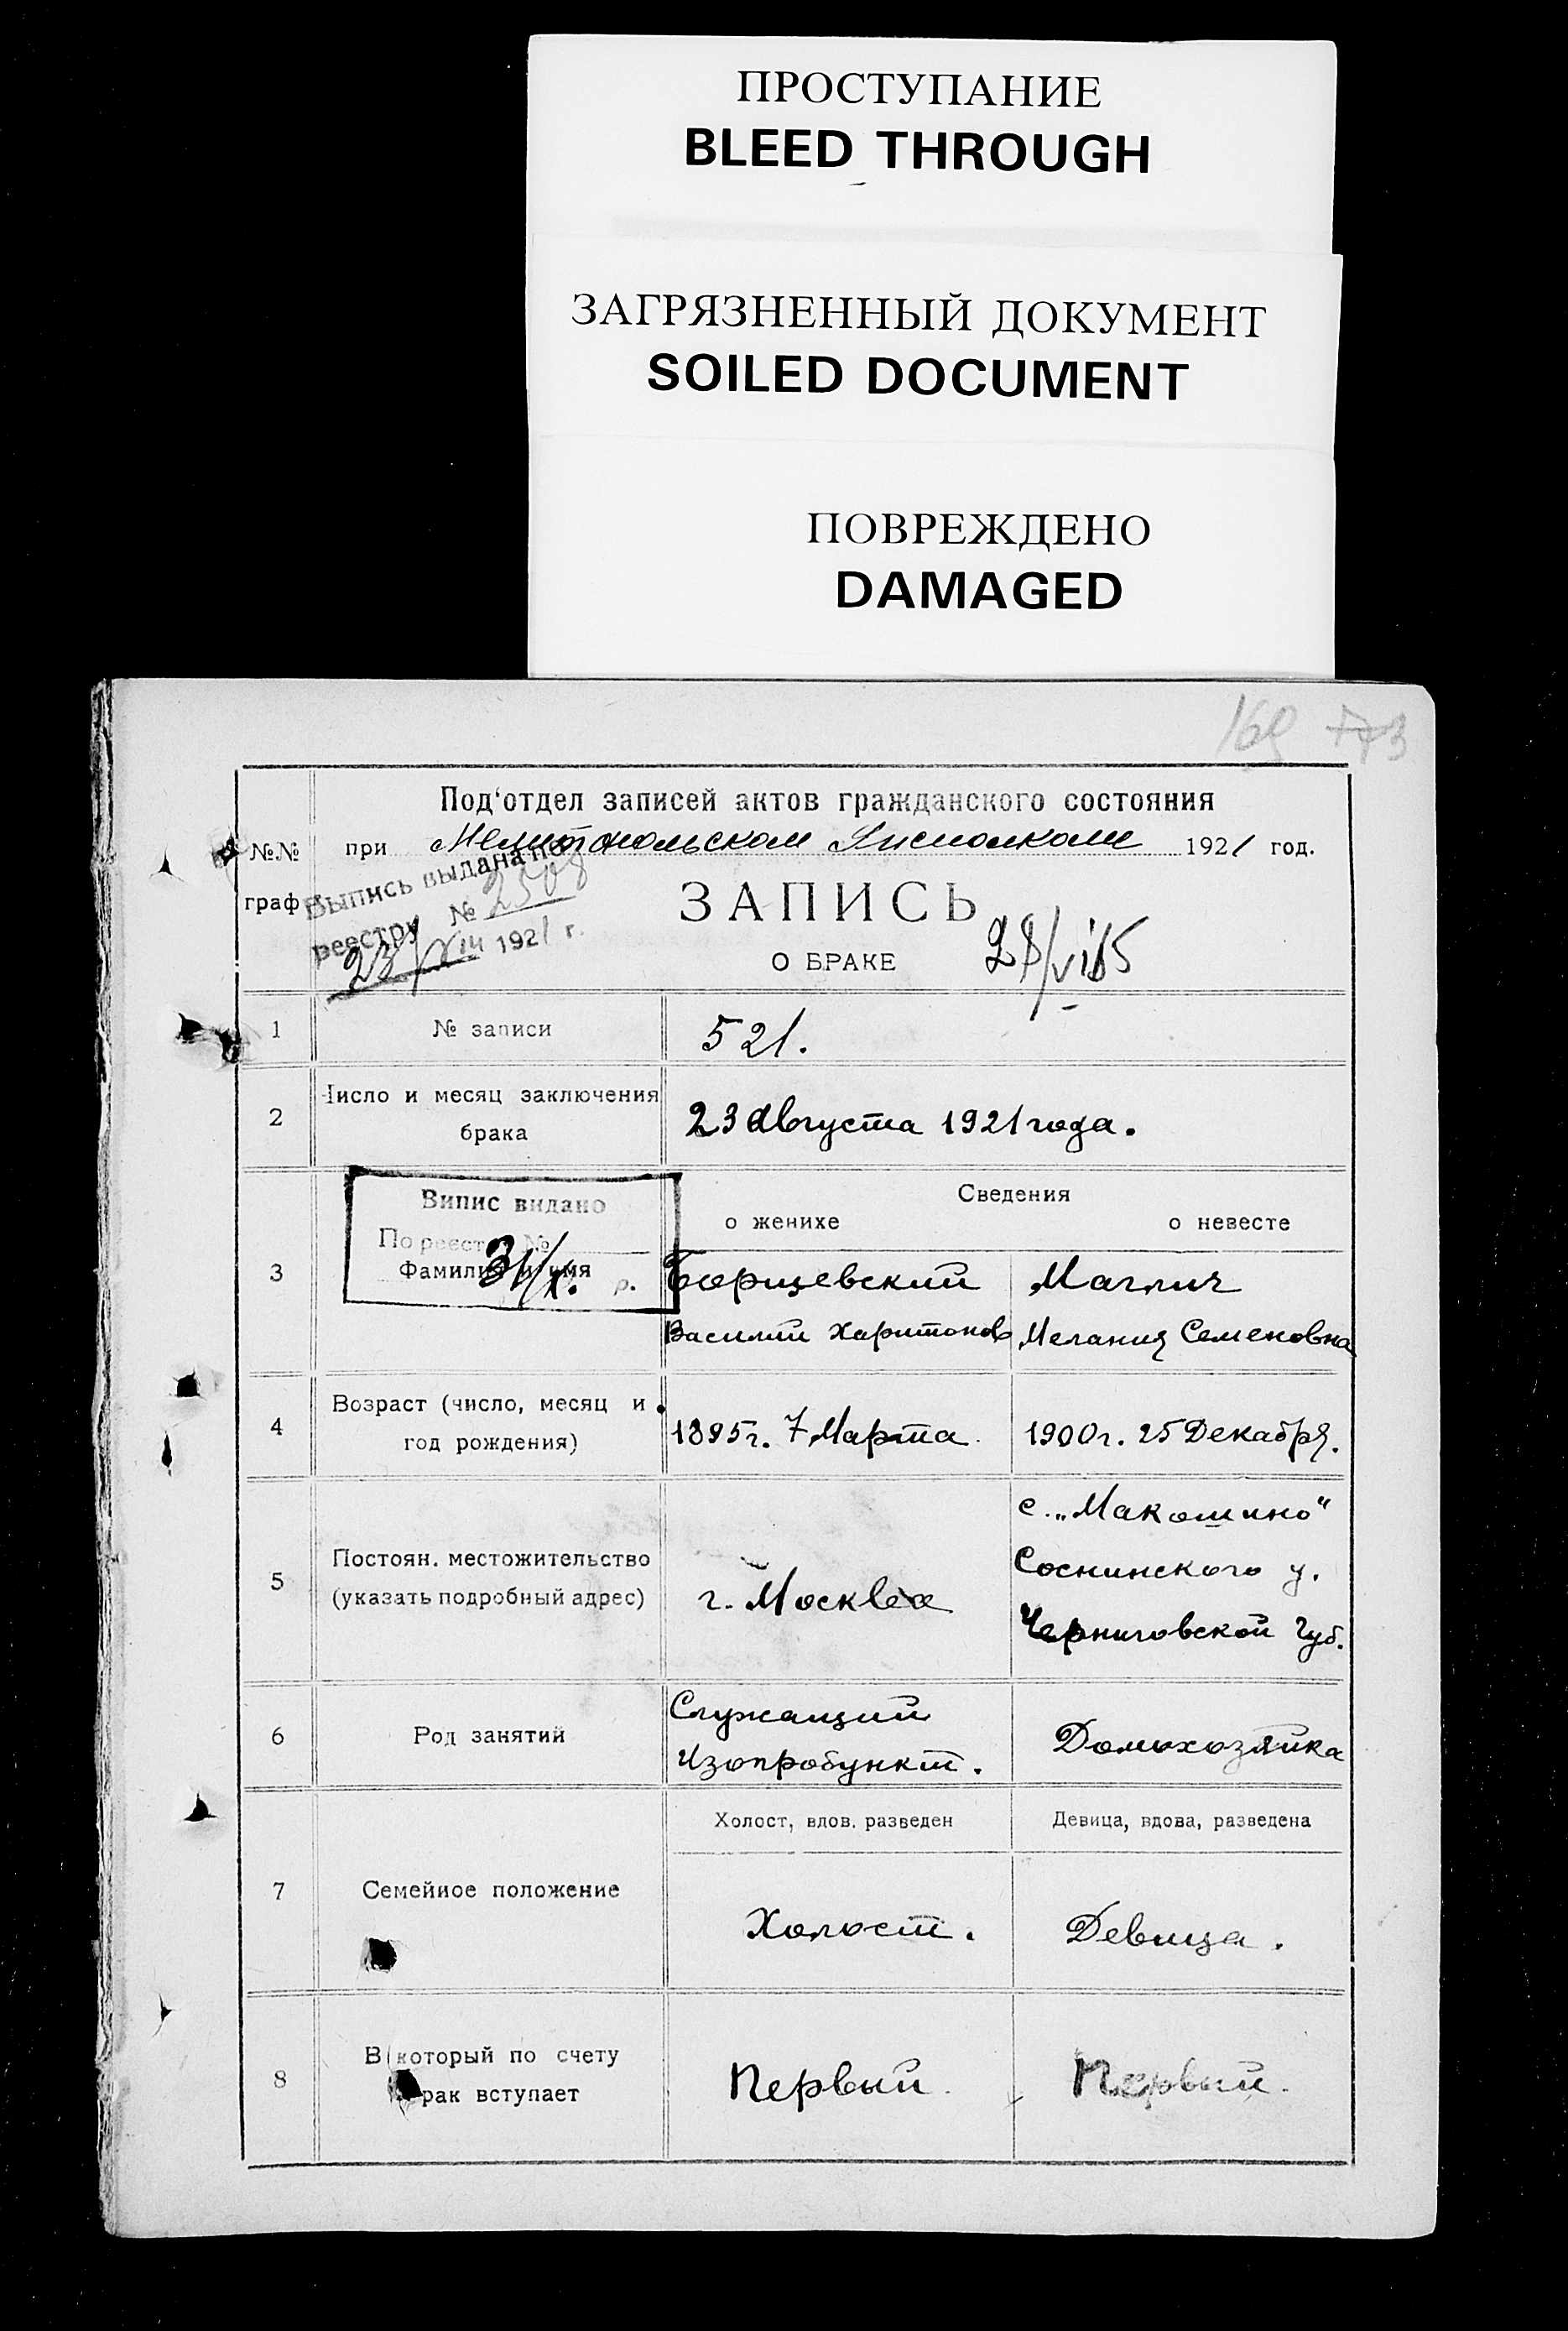 ПРОСТУПАНИЕ
BLEED THROUGH
ЗАГРЯЗНЕННЫЙ ДОКУМЕНТ
SOILED DOCUMENT
ПОВРЕЖДЕНО
DAMAGED
169 773
Под'отдел записей актов гражданского состояния
№№ граф
при Мелитопольском Исполкоме 1921 год.
Выпись выдана по
реестру №
23/VIII 1921 г.
ЗАПИСЬ
О БРАКЕ
1 № записи 521.
2 Число и месяц заключения
брака
23 Августа 1921 года.
Випис видано
По реестр №
31/X. р.
Сведения
о женихе о невесте
3 Фамилия и имя
Борщевский
Василий Харитонов
Маглич
Мелания Семеновна
4 Возраст (число, месяц и
год рождения)
1895г. 7 Марта
1900г. 25 Декабря.
5 Постоян. местожительство
(указать подробный адрес)
г. Москва
с. „Макошино“
Соснинского у.
Черниговской Губ.
6 Род занятий
Служащий
Изопропункт.
Домохозяйка
7 Семейное положение
Холост, вдов. разведен
Девица, вдова, разведена
Холост.
Девица.
8 В который по счету
рак вступает
Первый
Первый.